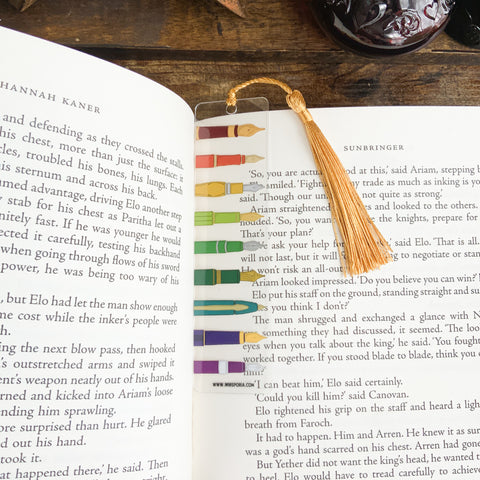 HANNAH KANER
and defending as they crossed the stalls,
his chest, more than just the surface: it
cles, troubled his bones, his lungs. Each
his sternum and across his back.
umed advantage, driving Elo another step
stab for his chest as Paritha let out a
nitely fast. If he was younger he would
ected it carefully, testing his backhand
when going through flows of his sword
power, he was being too wary of his
, but Elo had let the man show enough
me cost while the inker's people were
h.
ing the next blow pass, then hooked
's outstretched arms and swiped it
ent's weapon neatly out of his hands.
rned and kicked into Ariam's loose
nding him sprawling.
ore surprised than hurt. He glared
d out his hand.
took it.
at happened there,' he said. Then
SUNBRINGER
'So, you are actual good at this,' said Ariam, stepping
smiled. 'Fighting my trade as much as inking is yo
said. 'Though our not quite as strong.'
Ariam straightened and looked to the others.
'So, you wan the knights, prepare for
That's your plan?'
e ask your help for said Elo. 'That is all.
will not last, but it will negotiating or stan
He won't risk an all-ou
Ariam looked impressed. 'Do you believe you can win?' H
Elo put his staff on the ground, standing straight and su
s you think I don't?'
The man shrugged and exchanged a glance with N
something they had discussed, it seemed. 'The loo
eyes when you talk about the king,' he said. 'You fough
worked together. If you stood blade to blade, think you c
him?'
'I can beat him,' Elo said certainly.
'Could you kill him?' said Canovan.
Elo tightened his grip on the staff and heard a ligh
breath from Faroch.
It had to happen. Him and Arren. He knew it as sur
was a god's hand scarred on his chest. Arren had gone
But Yether did not want the king's head, he wanted t
to heel. Elo would have to tread carefully to achieve
WWW.IMMSPORIA.COM